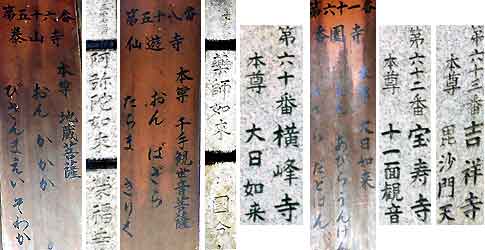 第五十六番
泰山寺
本尊 地蔵菩薩
おん かかか
びさんまえい そわか
阿弥陀如来
栄福寺
第五十八番
仙遊寺
本尊 千手観世音菩薩
おん ばざら
たらま きりく
薬師如来
国分
第六十番 横峰寺
本尊 大日如来
第六十一番
香園寺
本尊 大日如来
おん あびらうんけん
だとばん
第六十二番 宝寿寺
本尊 十一面観音
第六十三番 吉祥寺
本尊 毘沙門天